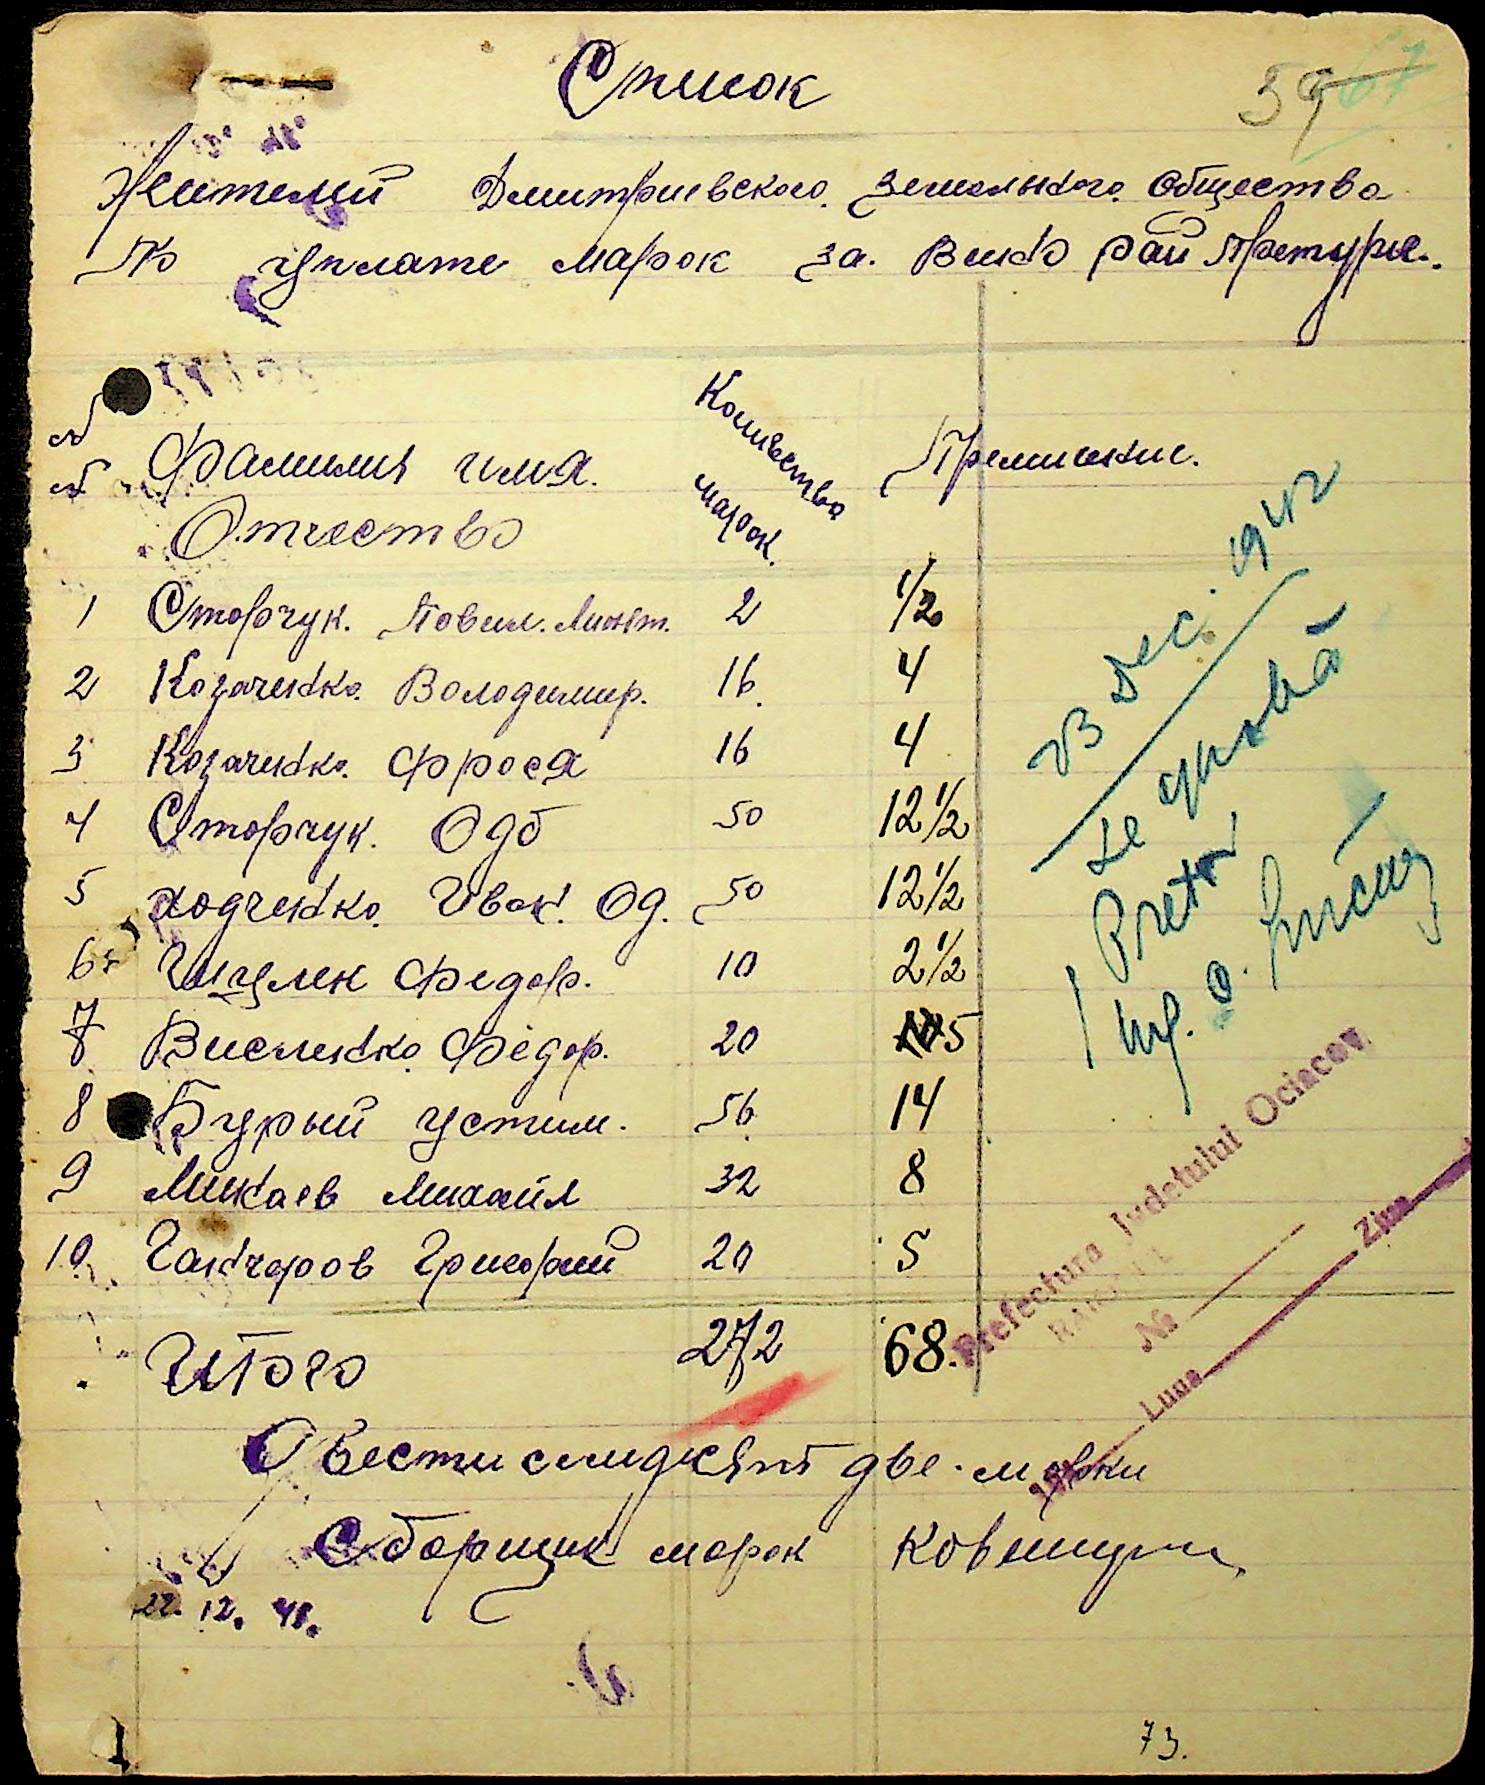 Список
59 67
Жителей Дмитриевского земельного общества
По уплате марок за. Вино рай Претуры.
№ Фамилия имя. Отчество
Количества марок.
Примичание.
1 Сторчук. Повел. 2 1/2
2 Козаченко. Володимир. 16. 4
3 Козаченко. Фрося 16 4
4 Сторчук. 50 12 1/2
5 Ходченко. Иван. Од. 50 12 1/2
6 Федор. 10 2 1/2
7 Висленко Фёдор. 20 5
8 Бурый Устим. 56 14
9 Минаев Михайл 32 8
10. Ганчаров Григорий 20 5
Итого 272 68.
Двести семдесят две. марки
Сборщик марок
22. 12. 42.
23 Dec. 1942
se aprobă
Pretor
Prefectura Județului Ociacov
№
Luna Ziua
73.